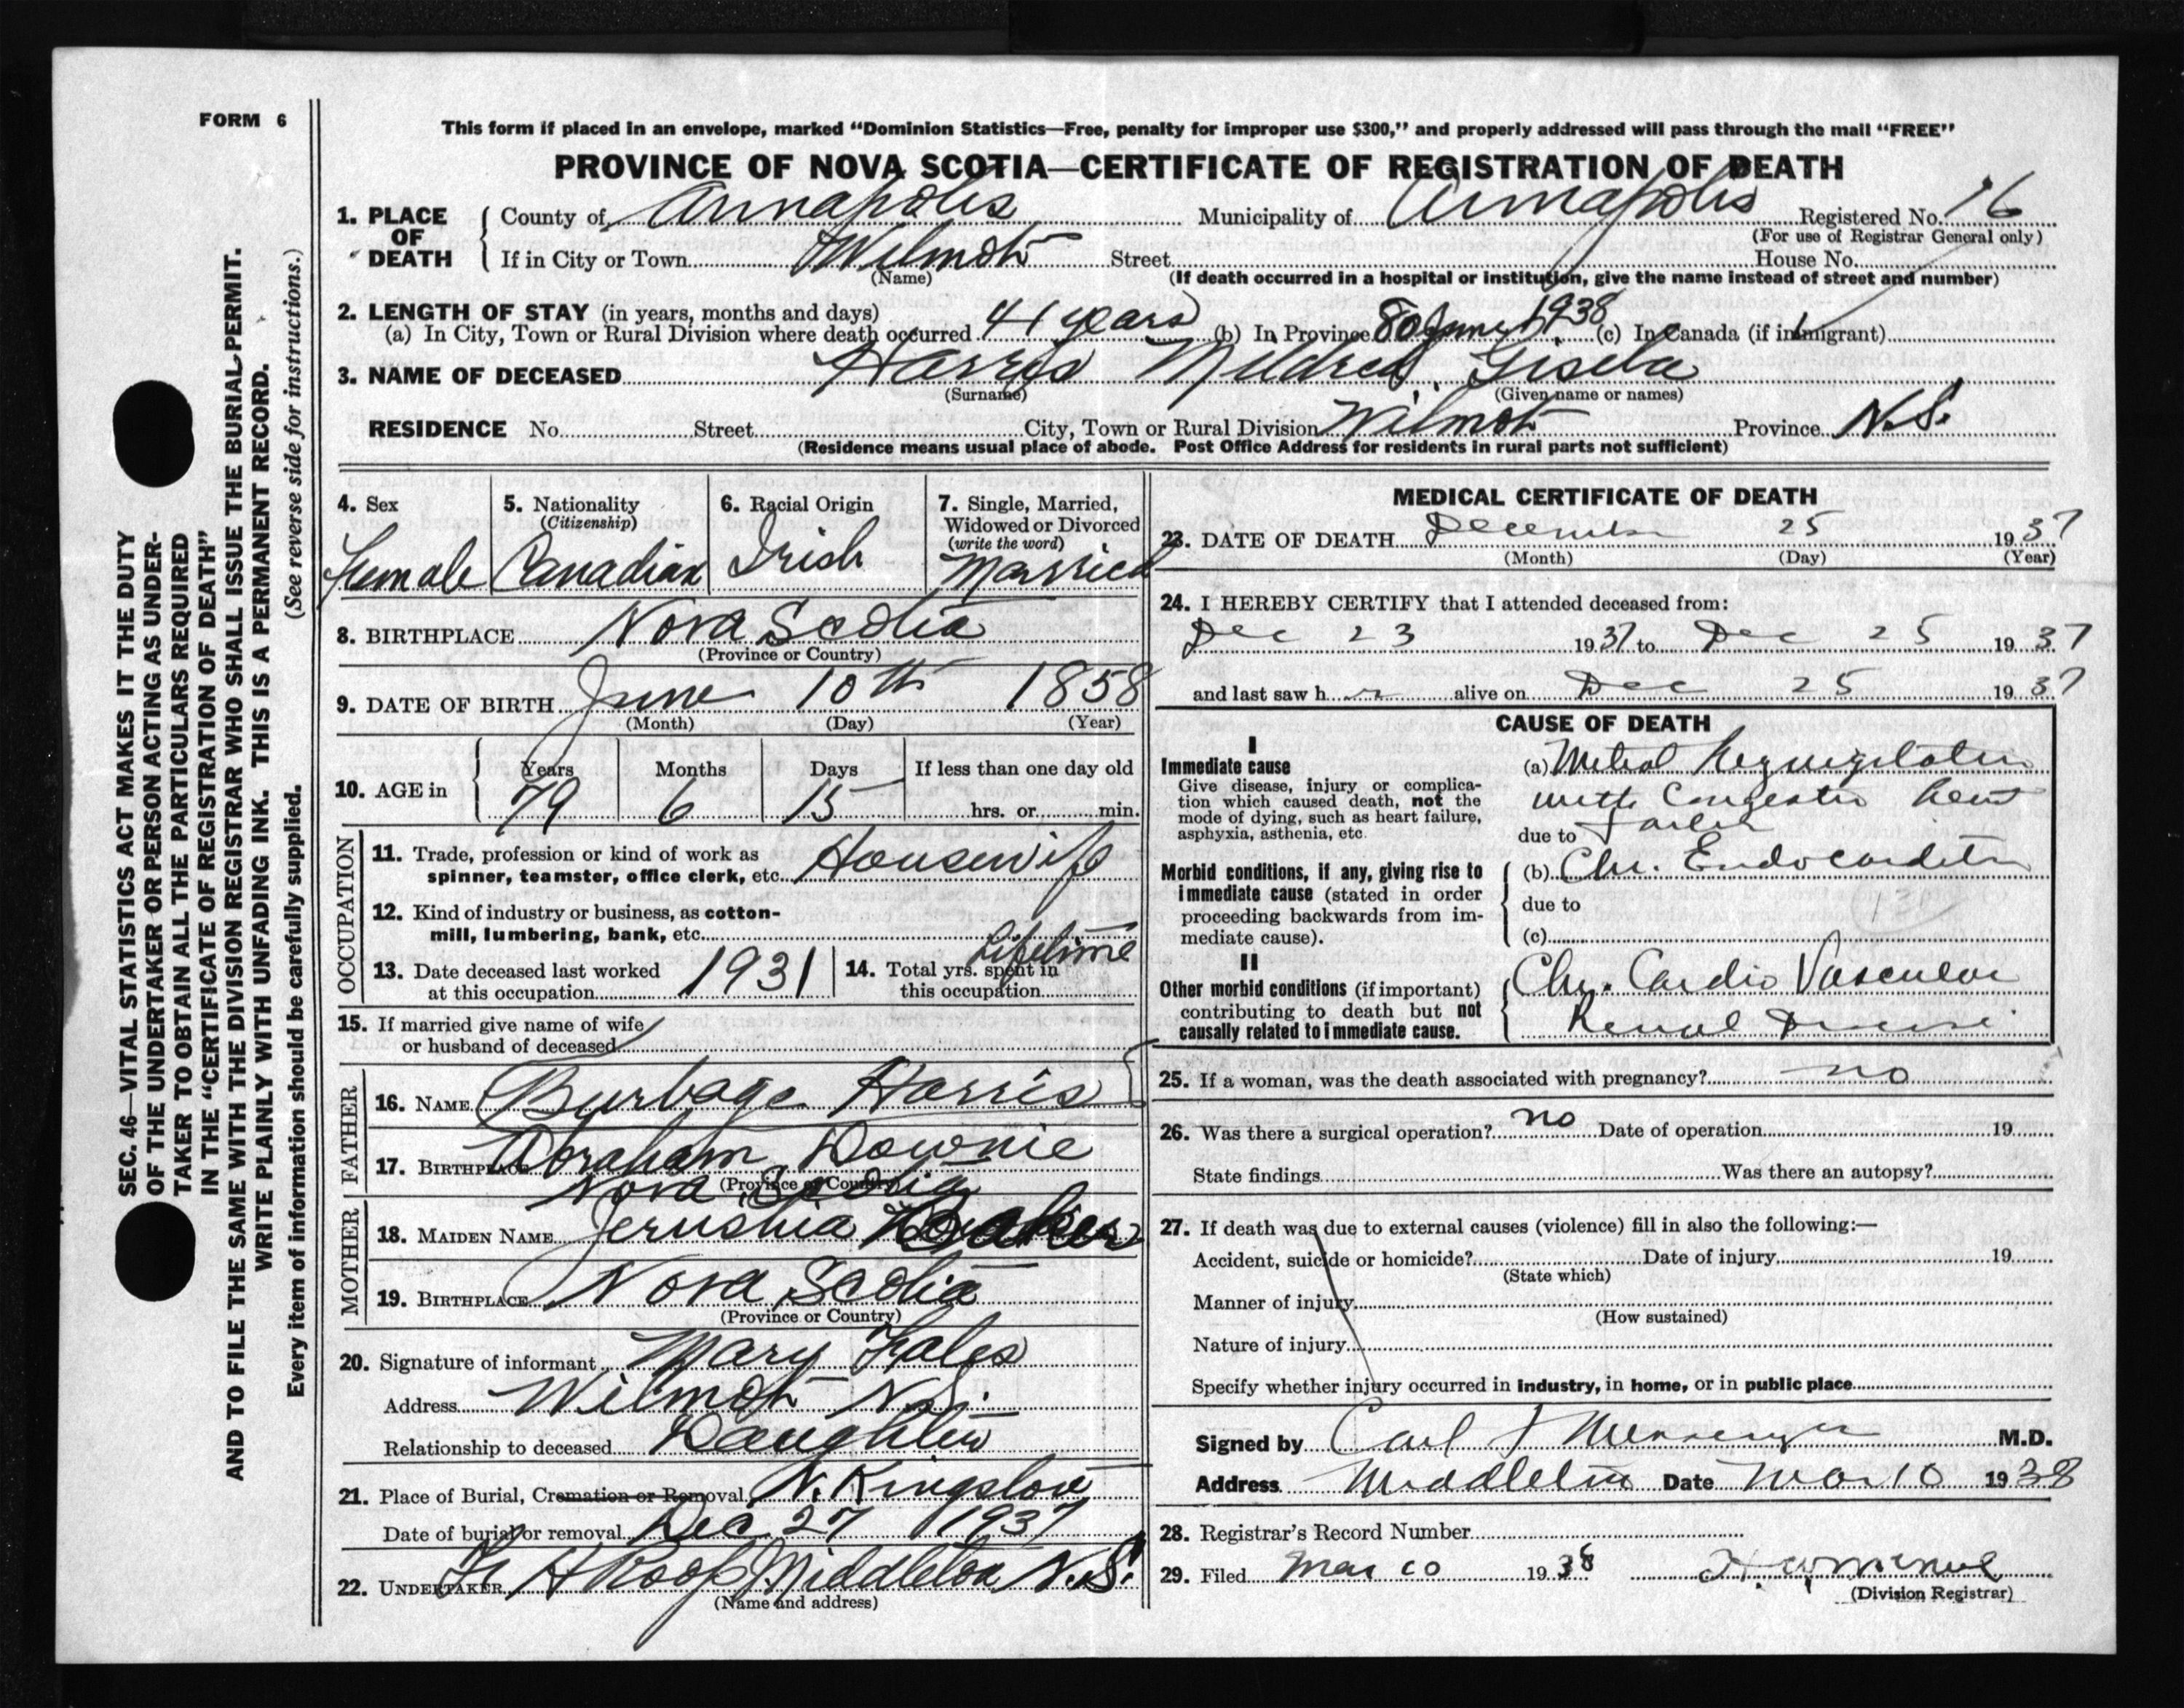 FORM 6
This form if placed in an envelope, marked “Dominion Statistics—Free, penalty for improper use $300,” and properly addressed will pass through the mail “FREE”
PROVINCE OF NOVA SCOTIA—CERTIFICATE OF REGISTRATION OF DEATH
1. PLACE OF DEATH
County of Annapolis Municipality of Annapolis Registered No. 16
(For use of Registrar General only)
If in City or Town Wilmot Street House No.
(Name) (If death occurred in a hospital or institution, give the name instead of street and number)
2. LENGTH OF STAY (in years, months and days)
(a) In City, Town or Rural Division where death occurred 41 years (b) In Province 80 June 1938 (c) In Canada (if immigrant)
3. NAME OF DECEASED Harris Mildred Gisela
(Surname) (Given name or names)
RESIDENCE No. Street City, Town or Rural Division Wilmot Province N.S.
(Residence means usual place of abode. Post Office Address for residents in rural parts not sufficient)
4. Sex
Female
5. Nationality
(Citizenship)
Canadian
6. Racial Origin
Irish
7. Single, Married,
Widowed or Divorced
(write the word)
Married
8. BIRTHPLACE Nova Scotia
(Province or Country)
9. DATE OF BIRTH June 10th 1858
(Month) (Day) (Year)
10. AGE in
Years Months Days If less than one day old
79 6 15 hrs. or min.
OCCUPATION
11. Trade, profession or kind of work as
spinner, teamster, office clerk, etc. Housewife
12. Kind of industry or business, as cotton-
mill, lumbering, bank, etc.
13. Date deceased last worked
at this occupation 1931
14. Total yrs. spent in
this occupation Lifetime
15. If married give name of wife
or husband of deceased
FATHER
16. NAME Burbage Harris
Abraham Downie
17. BIRTHPLACE
(Province or Country)
Nova Scotia
MOTHER
18. MAIDEN NAME Jerushia Baker
19. BIRTHPLACE Nova Scotia
(Province or Country)
20. Signature of informant Mary Fales
Address Wilmot N.S.
Relationship to deceased Daughter
21. Place of Burial, Cremation or Removal N. Kingston
Date of burial or removal Dec 27 1937
22. UNDERTAKER H Roop Middleton N.S.
(Name and address)
MEDICAL CERTIFICATE OF DEATH
23. DATE OF DEATH December 25 1937
(Month) (Day) (Year)
24. I HEREBY CERTIFY that I attended deceased from:
Dec 23 1937 to Dec 25 1937
and last saw h r alive on Dec 25 1937
CAUSE OF DEATH
I
Immediate cause
Give disease, injury or complica-
tion which caused death, not the
mode of dying, such as heart failure,
asphyxia, asthenia, etc.
(a) Mitral Regurgitation
with Congestive heart
due to failure
Morbid conditions, if any, giving rise to
immediate cause (stated in order
proceeding backwards from im-
mediate cause).
(b) Chr. Endocarditis
due to
(c)
II
Other morbid conditions (if important)
contributing to death but not
causally related to immediate cause.
Chr. Cardio Vascular
Renal Disease
25. If a woman, was the death associated with pregnancy? no
26. Was there a surgical operation? no Date of operation 19
State findings Was there an autopsy?
27. If death was due to external causes (violence) fill in also the following:—
Accident, suicide or homicide? Date of injury 19
(State which)
Manner of injury
(How sustained)
Nature of injury
Specify whether injury occurred in industry, in home, or in public place
Signed by Carl Messenger M.D.
Address Middleton Date Mar 10 1938
28. Registrar’s Record Number
29. Filed Mar 10 1938
(Division Registrar)
SEC. 46—VITAL STATISTICS ACT MAKES IT THE DUTY
OF THE UNDERTAKER OR PERSON ACTING AS UNDER-
TAKER TO OBTAIN ALL THE PARTICULARS REQUIRED
IN THE “CERTIFICATE OF REGISTRATION OF DEATH”
AND TO FILE THE SAME WITH THE DIVISION REGISTRAR WHO SHALL ISSUE THE BURIAL PERMIT.
WRITE PLAINLY WITH UNFADING INK. THIS IS A PERMANENT RECORD.
Every item of information should be carefully supplied. (See reverse side for instructions.)